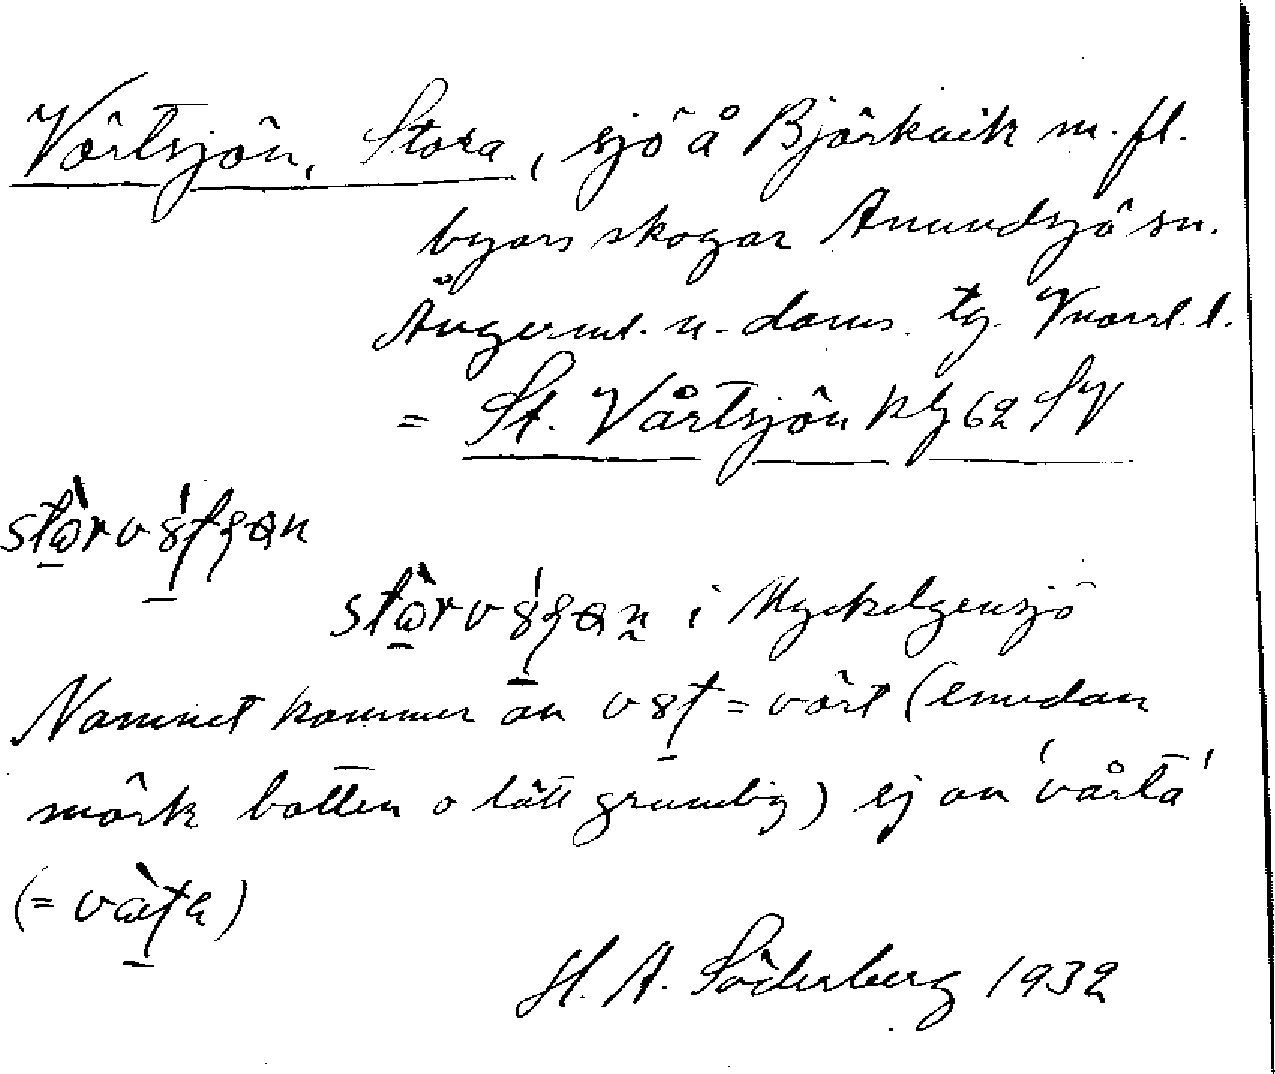 Vörtsjön, Stora, sjö å Björkvik m. fl.
byars skogar Anundsjö sn.
Ångerml. n. doms. tg. Vnorrl. l.
= St. Vårtsjön kbl 62 SV
i Myckelgensjö
Namnet kommer an = vört (emedan
mörk botten o lätt grumlig) ej an 'vårta'
H. A. Söderberg 1932